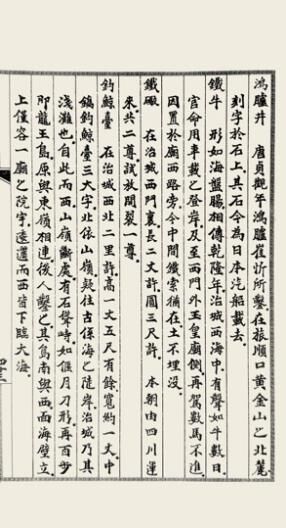 鴻臚井 唐貞觀年鴻臚崔忻所鑿在旅順口黃金山之北麓
刻字於石上其石今為日本汽船載去
鐵牛 形如海盤腸相傳乾隆年治城西海中有聲如牛數日
官命用車載之登岸及至西門外玉皇廟側再駕數馬不進
因置於廟西路旁今中間鐵索猶在土不埋沒
鐵礮 在治城西門裏長二丈許圓三尺許 本朝由四川運
來共二尊試放開裂一尊
釣鯨臺 在治城西北二里許高一丈五尺有餘寬約一丈中
鎬釣鯨臺三大字北依山嶺疑往古係海之陡岸治城乃其
淺灘也自此而西山嶺斷處有石聳峙如偃月刀形再百步
即龍王島原與東嶺相連後人鑿之其島南與西面海壁立
上僅容一廟之院宇遠邇而西皆下臨大海